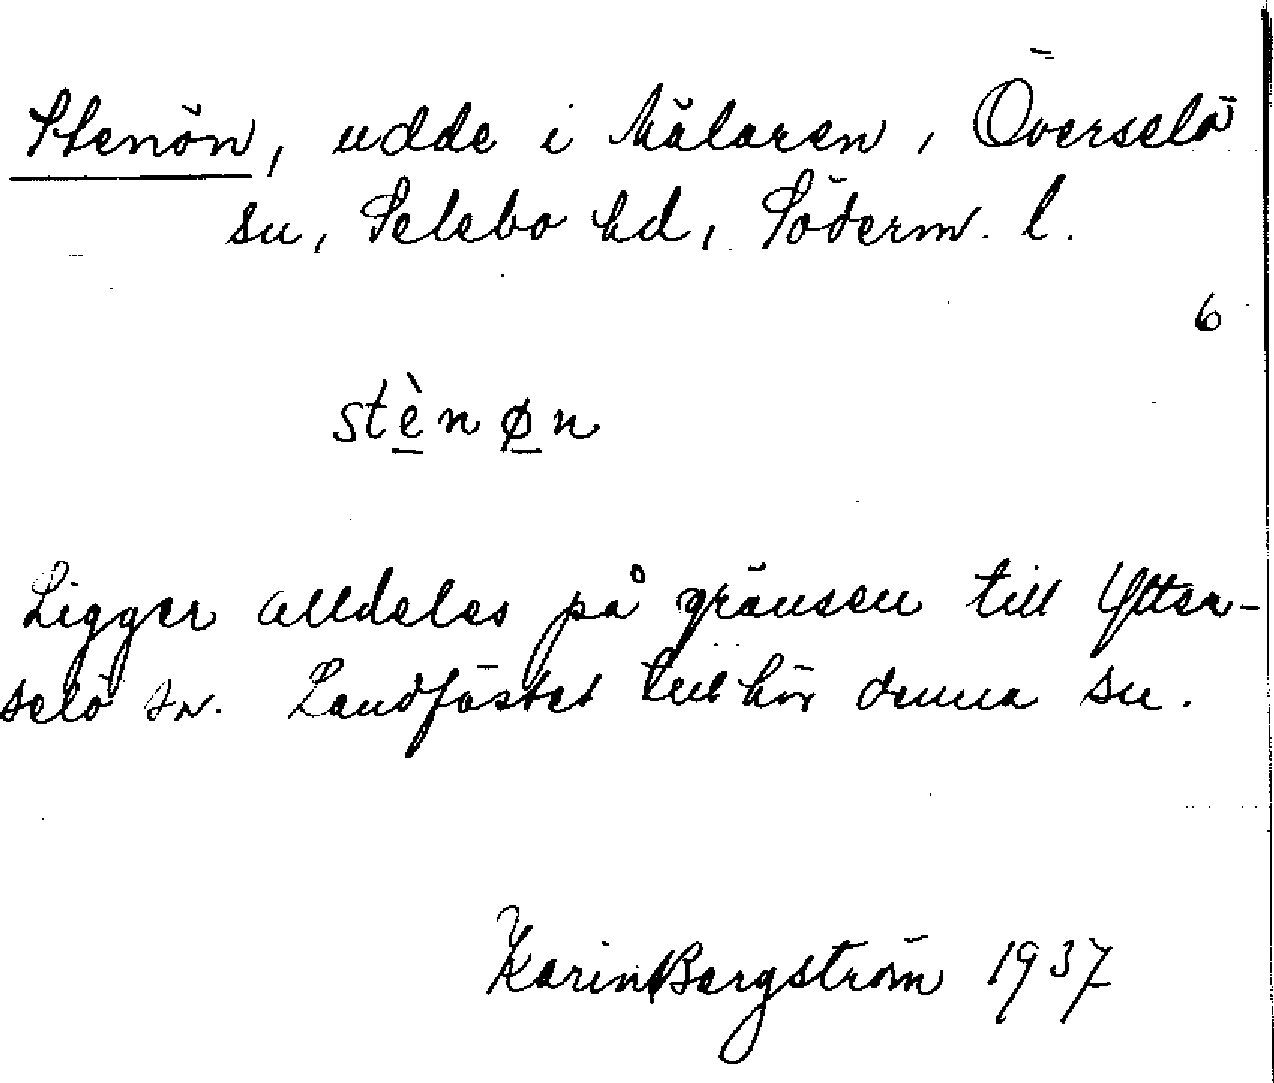 Stenön, udde i Mälaren, Överselö
sn, Selebo hd, Söderm. l.
6
stènøn
Ligger alldeles på gränsen till Ytter-
selö sn. Landfästet tillhör denna sn.
Karin Bergström 1937